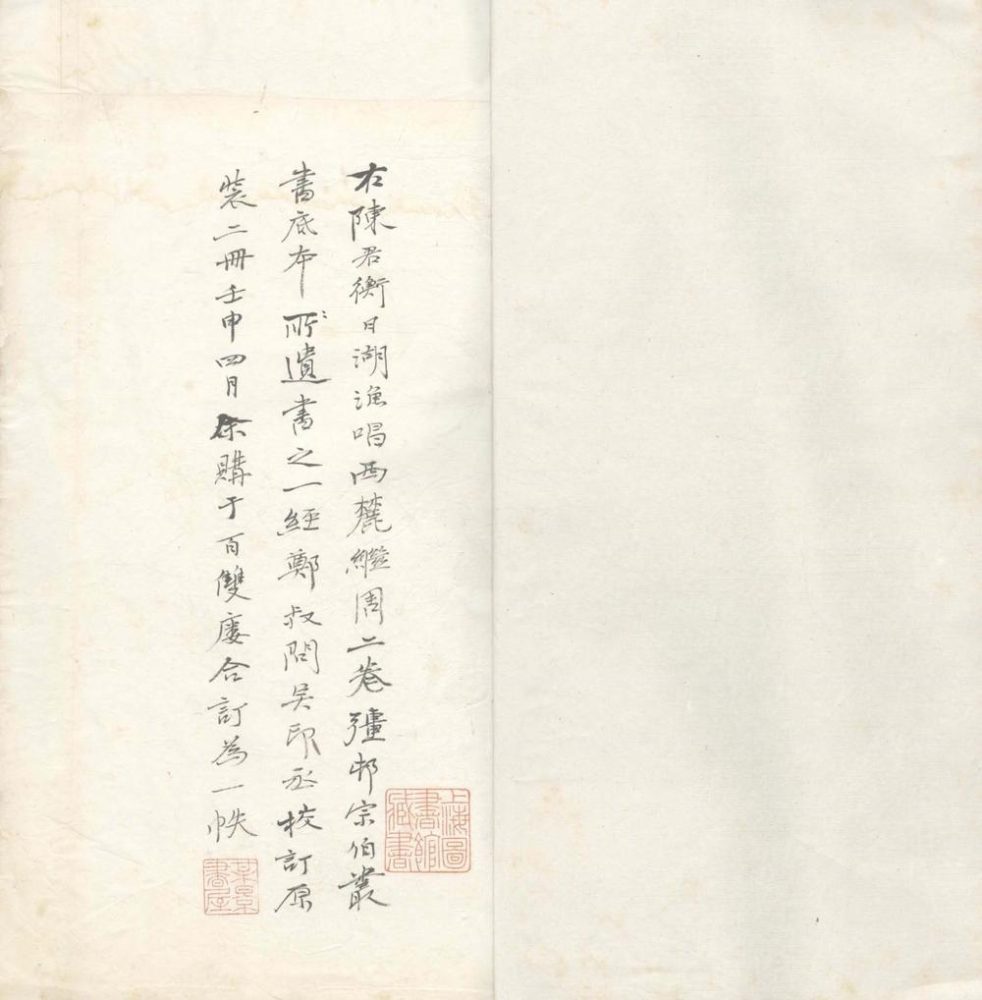 右陳君衡日湖漁唱西麓繼周二卷彊邨宗伯叢
書底本所遺書之一經鄭叔問吳印丞校訂原
裝二冊壬申四月余購于百雙廔合訂為一帙
上海圖
書館
藏書
某景
書屋